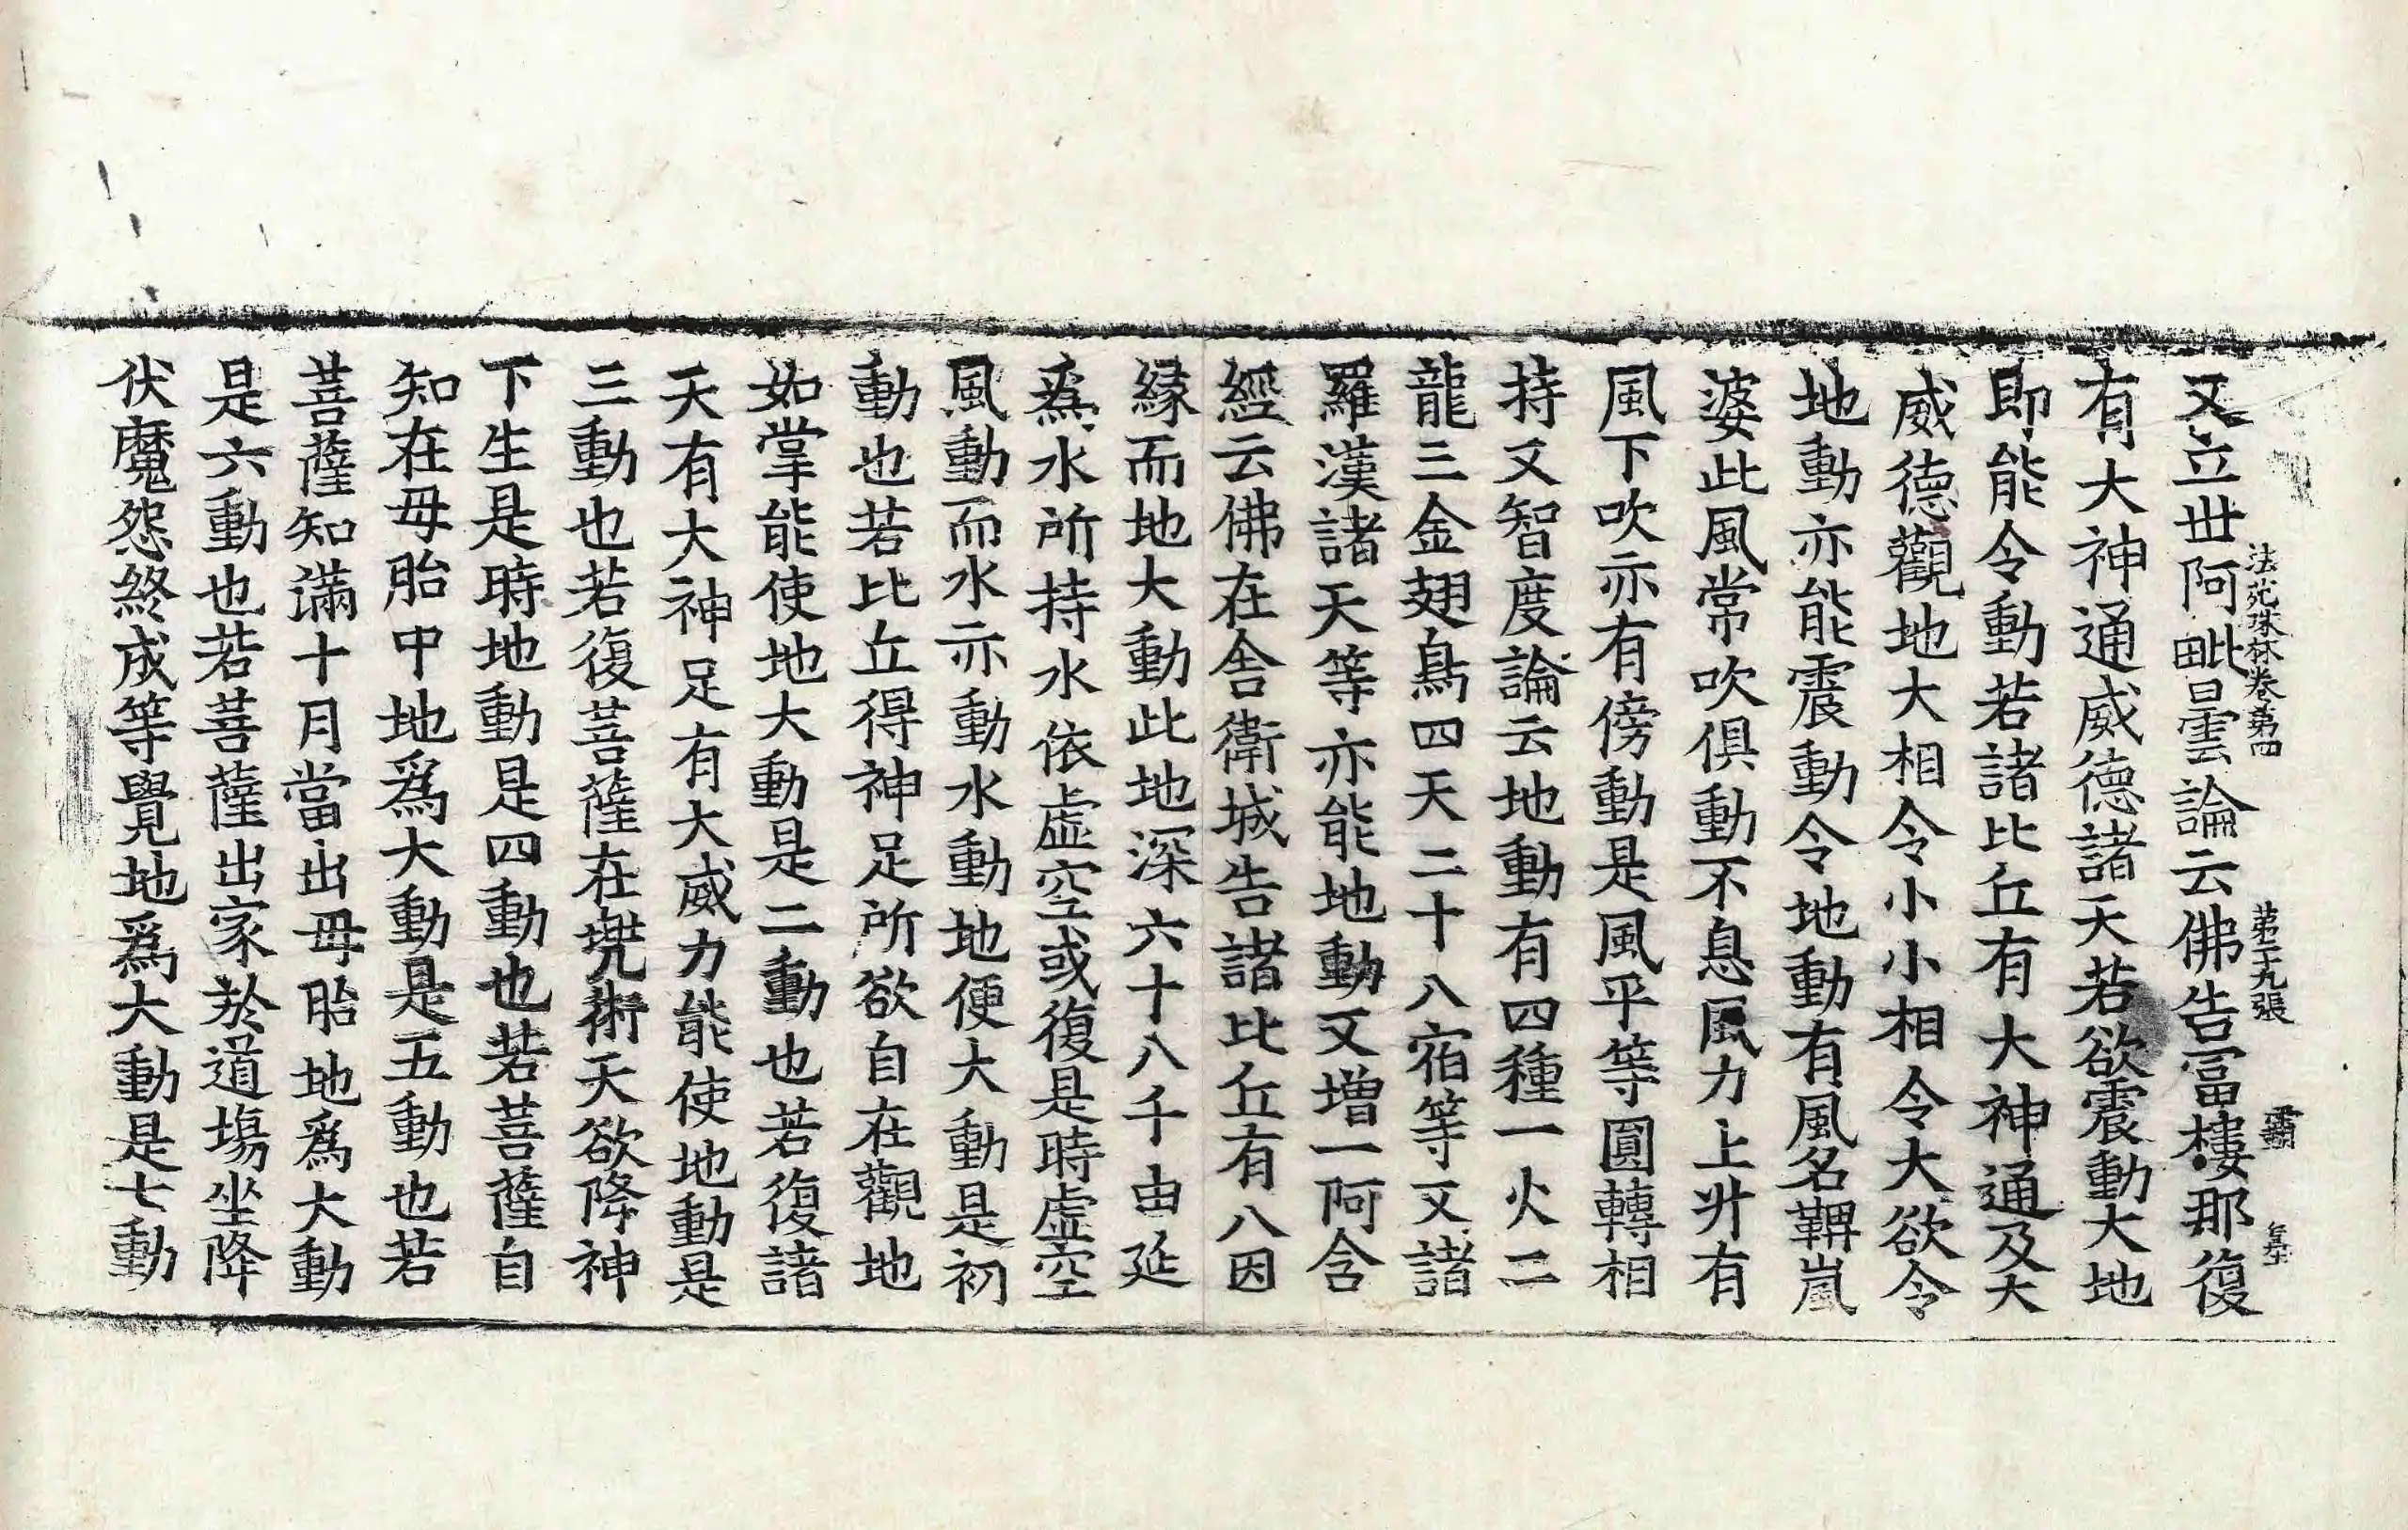 法苑珠林卷第四 第二十九張 霸
又立世阿毗曇論云佛告富樓那復
有大神通威德諸天若欲震動大地
即能令動若諸比丘有大神通及大
威德觀地大相令小小相令大欲令
地動亦能震動令地動有風名鞞嵐
婆此風常吹俱動不息風力上升有
風下吹亦有傍動是風平等圓轉相
持又智度論云地動有四種一火二
龍三金翅鳥四天二十八宿等又諸
羅漢諸天等亦能地動又增一阿含
經云佛在舍衛城告諸比丘有八因
緣而地大動此地深六十八千由延
爲水所持水依虛空或復是時虛空
風動而水亦動水動地便大動是初
動也若比丘得神足所欲自在觀地
如掌能使地大動是二動也若復諸
天有大神足有大威力能使地動是
三動也若復菩薩在兠術天欲降神
下生是時地動是四動也若菩薩自
知在母胎中地爲大動是五動也若
菩薩知滿十月當出母胎地爲大動
是六動也若菩薩出家於道場坐降
伏魔怨終成等覺地爲大動是七動